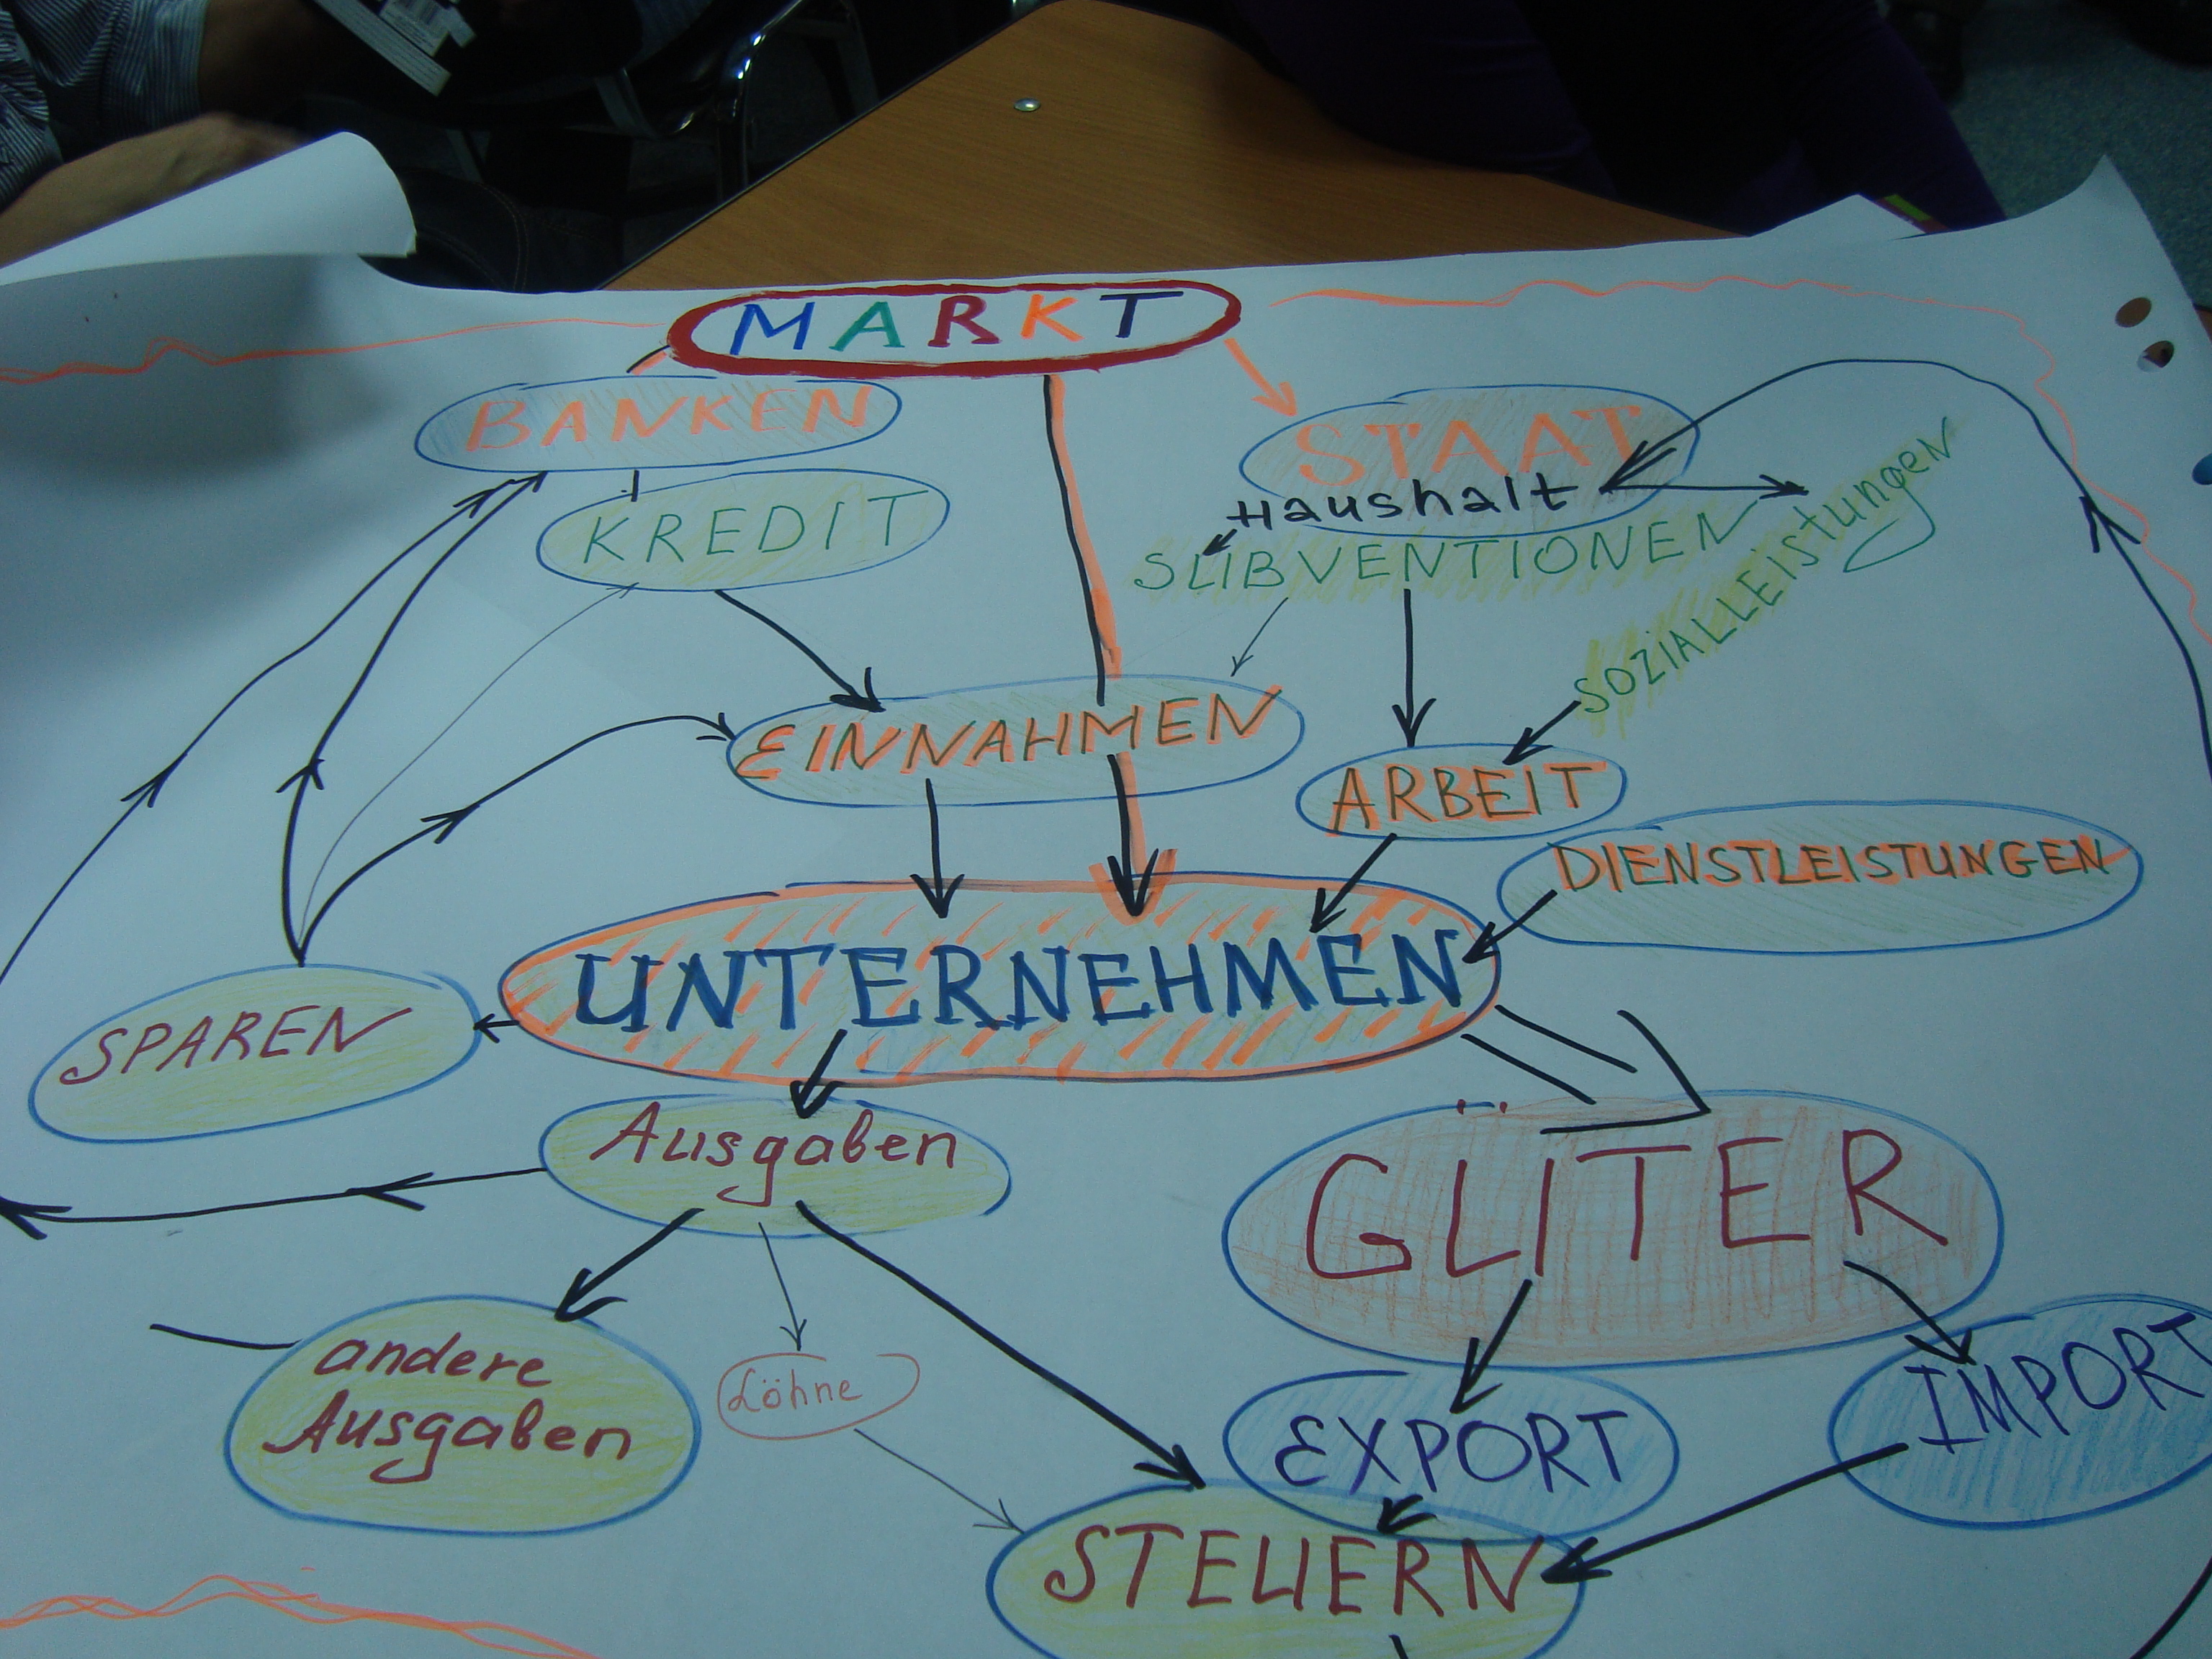 MARKT
BANKEN
STAAT
KREDIT
Haushalt
SUBVENTIONEN
SOZIALLEistungen
EINNAHMEN
ARBEIT
DIENSTLEISTUNGEN
UNTERNEHMEN
SPAREN
Ausgaben
GÜTER
andere
Ausgaben
Löhne
EXPORT
IMPORT
STEUERN